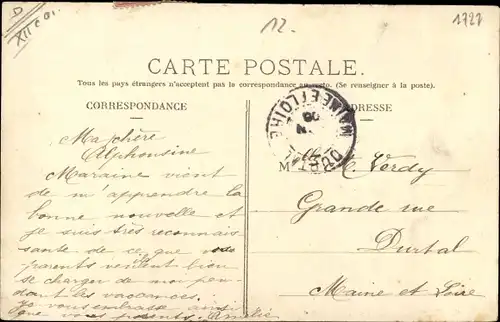 12
1727
CARTE POSTALE.
Tous les pays étrangers n'acceptent pas la correspondance au recto. (Se renseigner à la poste).
CORRESPONDANCE
ADRESSE
Ma chère
Alphonsine
Maraine vient
de m'apprendre la
bonne nouvelle et
je suis très reconnais
sante de ce que vos
parents veulent bien
se charger de moi pen
dant les vaccances.
Je vous embrasse ainsi
que vos parents. Amélie
M Verdy
Grande rue
Durtal
Maine et Loire
DURTAL
MAINE ET LOIRE
08